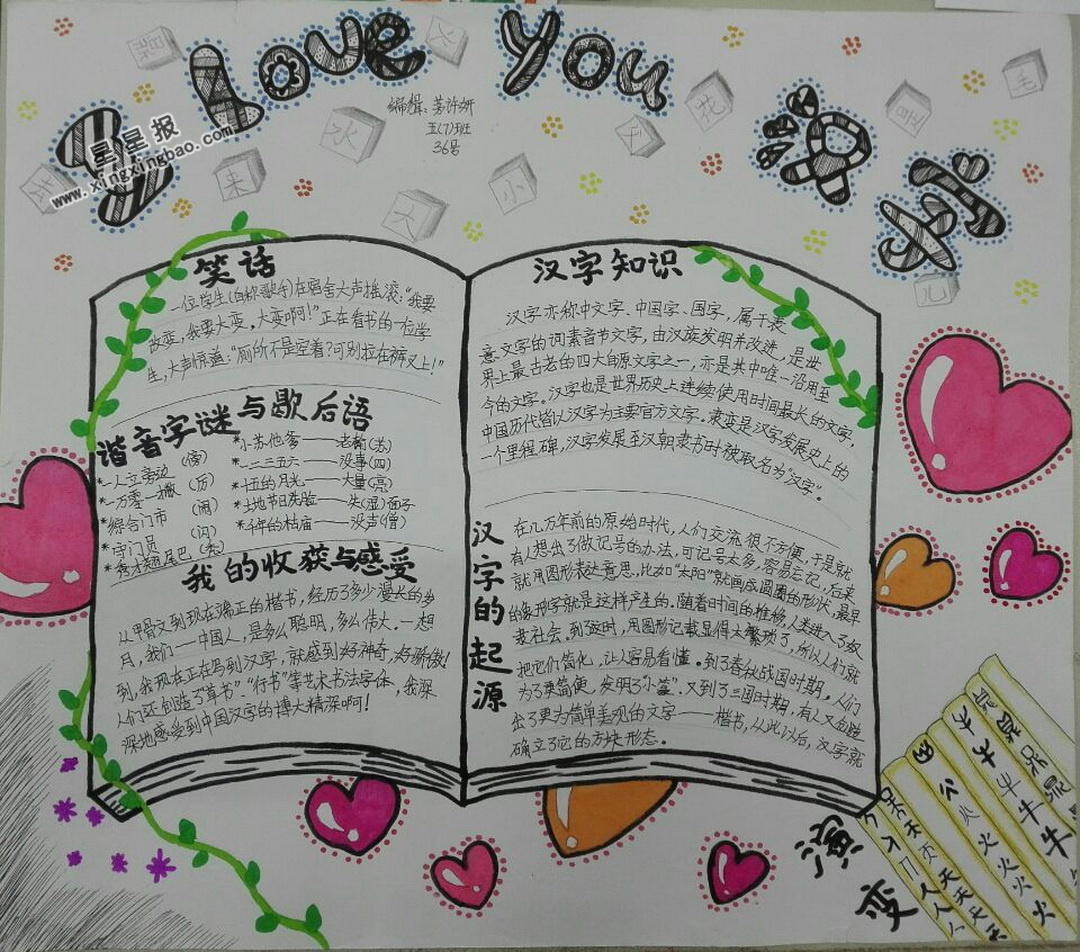 I Love You 汉字
星星报
www.xingxingbao.com
编辑：苏许妍
五(7)班
36号
去
来
水
火
小
花
毛
儿
笑话
一位学生(自称歌手)在宿舍大声摇滚："我要
改变，我要大变，大变啊！"正在看书的一位学
生，大声惊道："厕所不是空着？可别拉在裤叉上！"
谐音字谜与歇后语
*一人立旁边 (傍)
*一万零一撇 (厉)
*综合门市 (闹)
*守门员 (闪)
*秀才翘尾巴 (秃)
*小苏他爹——老输(苏)
*一二三五六——没事(四)
*十五的月光——大量(亮)
*土地爷洗脸——失(湿)面子
*千年的枯庙——没声(僧)
我的收获与感受
从甲骨文到现在端正的楷书，经历了多少漫长的岁
月，我们——中国人，是多么聪明，多么伟大.一想
到，我现在正在写到汉字，就感到好神奇，好骄傲！
人们还创造了"草书"、"行书"等艺术书法字体，我深
深地感受到中国汉字的博大精深啊！
汉字知识
汉字亦称中文字、中国字、国字，属于表
意文字的词素音节文字，由汉族发明并改进，是世
界上最古老的四大自源文字之一，亦是其中唯一沿用至
今的文字。汉字也是世界历史上连续使用时间最长的文字，
中国历代皆以汉字为主要官方文字。隶变是汉字发展史上的
一个里程碑，汉字发展至汉朝隶书时被取名为"汉字"。
汉字的起源
在几万年前的原始时代，人们交流很不方便，于是就
有人想出了做记号的办法，可记号太多，容易忘记，后来
就用图形表达意思，比如"太阳"就画成圆圈的形状，最早
的象形字就是这样产生的.随着时间的推移，人类进入了奴
隶社会，到了这时，用图形记载显得太繁琐了，所以人们就
把它们简化，让人容易看懂。到了春秋战国时期，人们
为了更简便，发明了"小篆".又到了三国时期，有人又创造
出了更为简单美观的文字——楷书，从此以后，汉字就
确立了它的方块形态。
演变